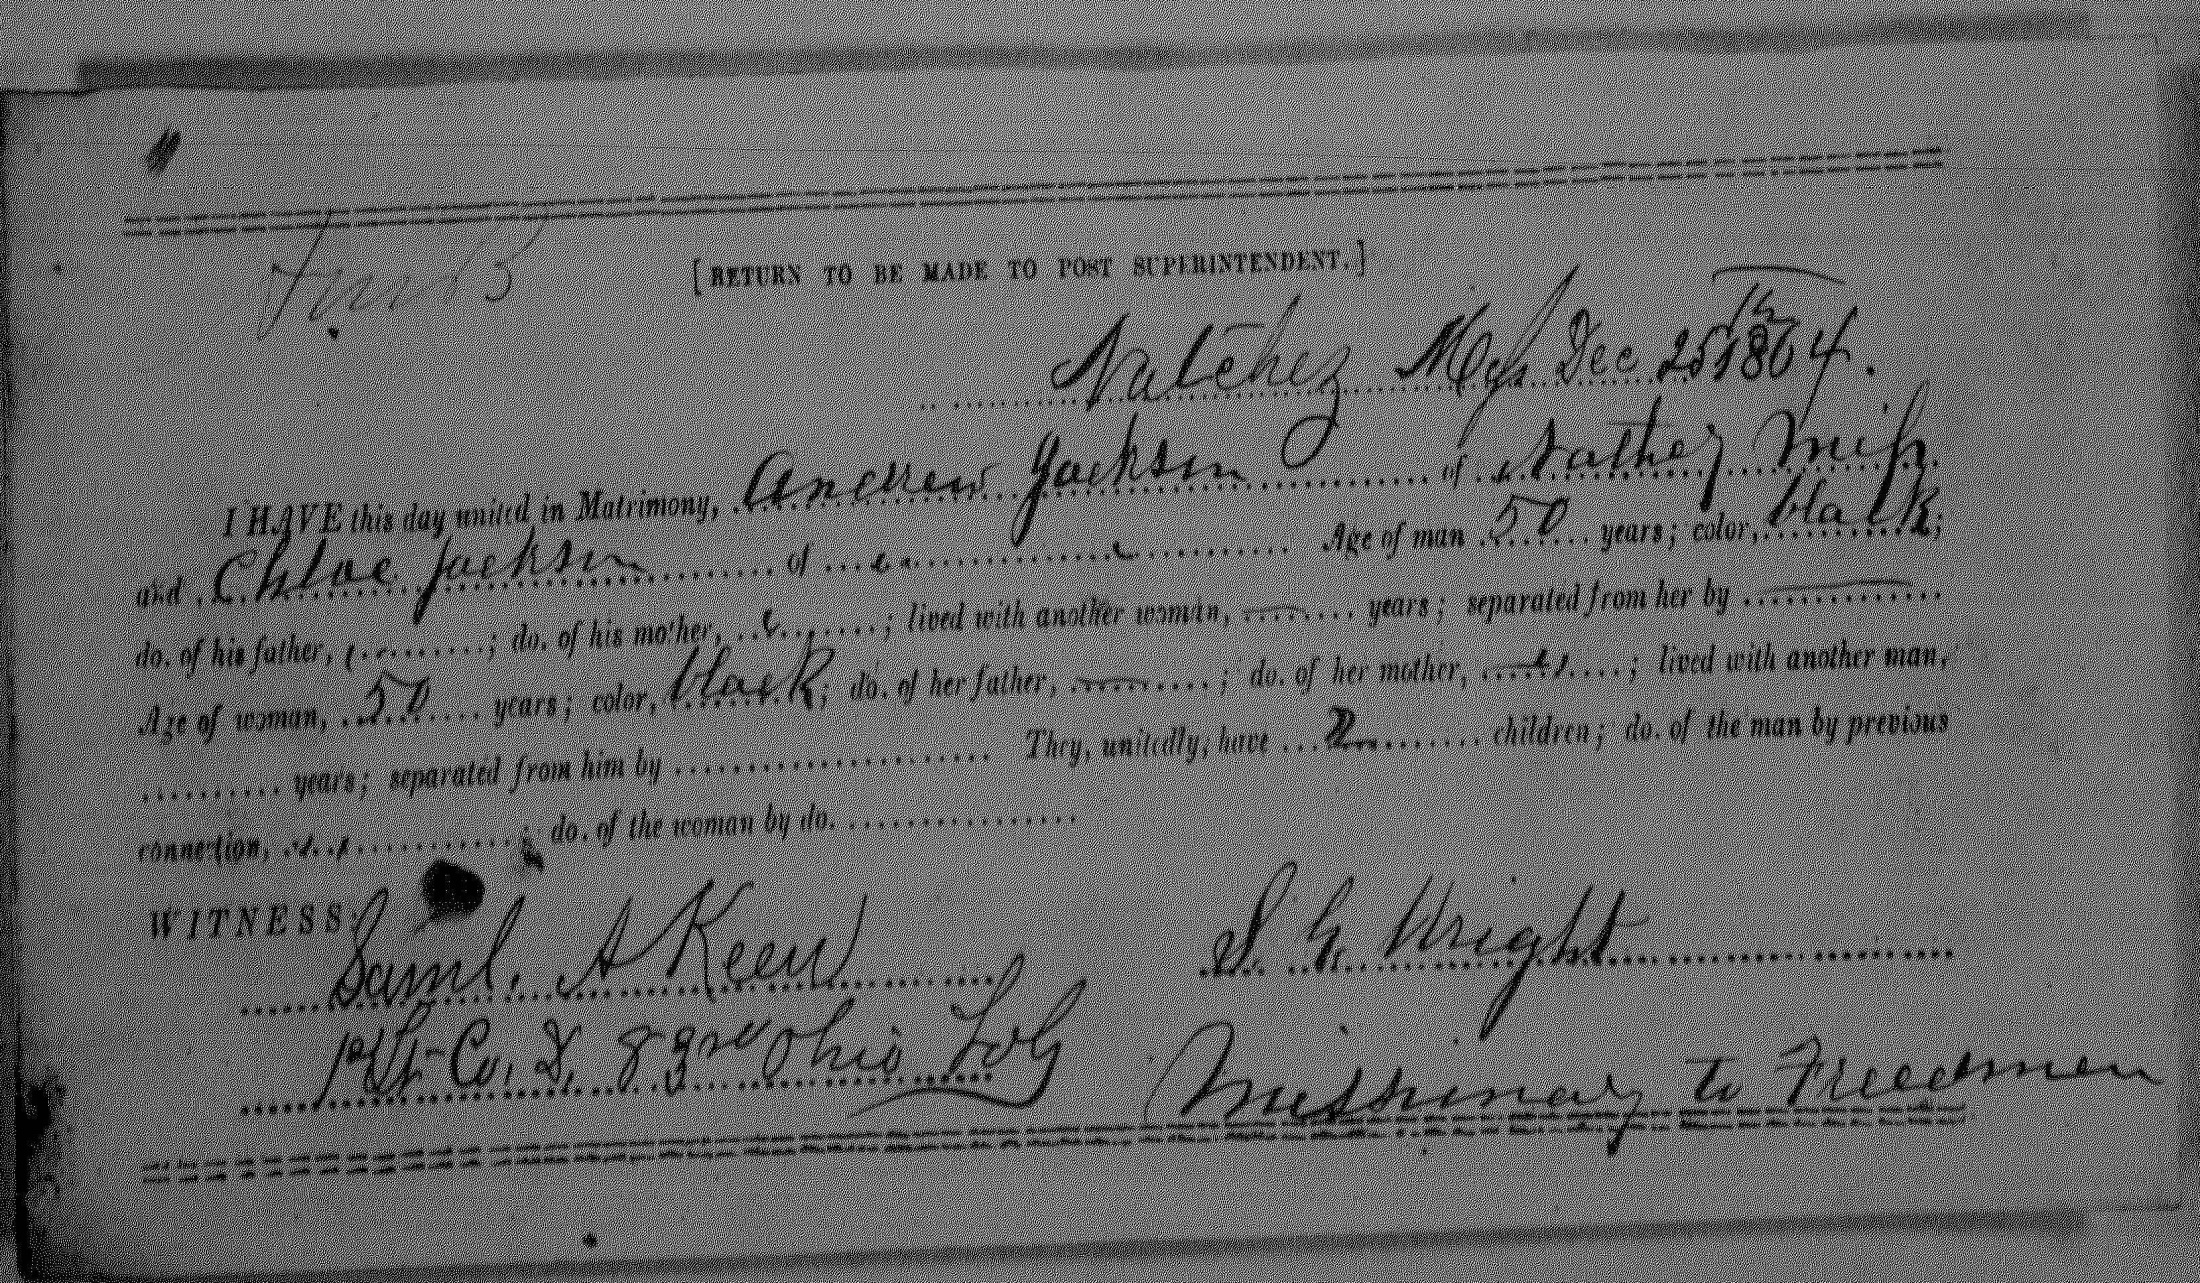 [RETURN TO BE MADE TO POST SUPERINTENDENT.]
Natchez Dec 25th 1864.
I HAVE this day united in Matrimony, Andrew Jackson of Natchez Miss.
and Chloe Jackson of Age of man 50 years; color, black;
do. of his father, ; do. of his mother, ; lived with another woman, years; separated from her by
Age of woman, 50 years; color, black; do. of her father, ; do. of her mother, ; lived with another man,
years; separated from him by They, unitedly, have 2 children; do. of the man by previous
connection, ; do. of the woman by do.
WITNESS:
Saml. A Keen S G. Wright
1st Lt Co, D, Ohio Missionary to Freedmen